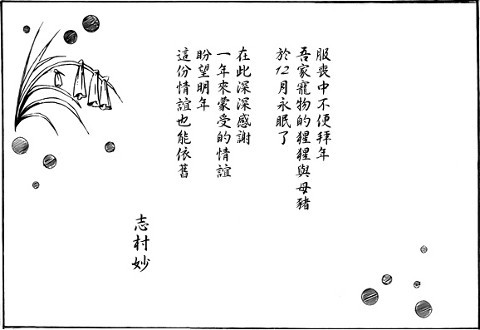 服喪中不便拜年
吾家寵物的猩猩與母豬
於12月永眠了
在此深深感謝
一年來蒙受的情誼
盼望明年
這份情誼也能依舊
志村妙